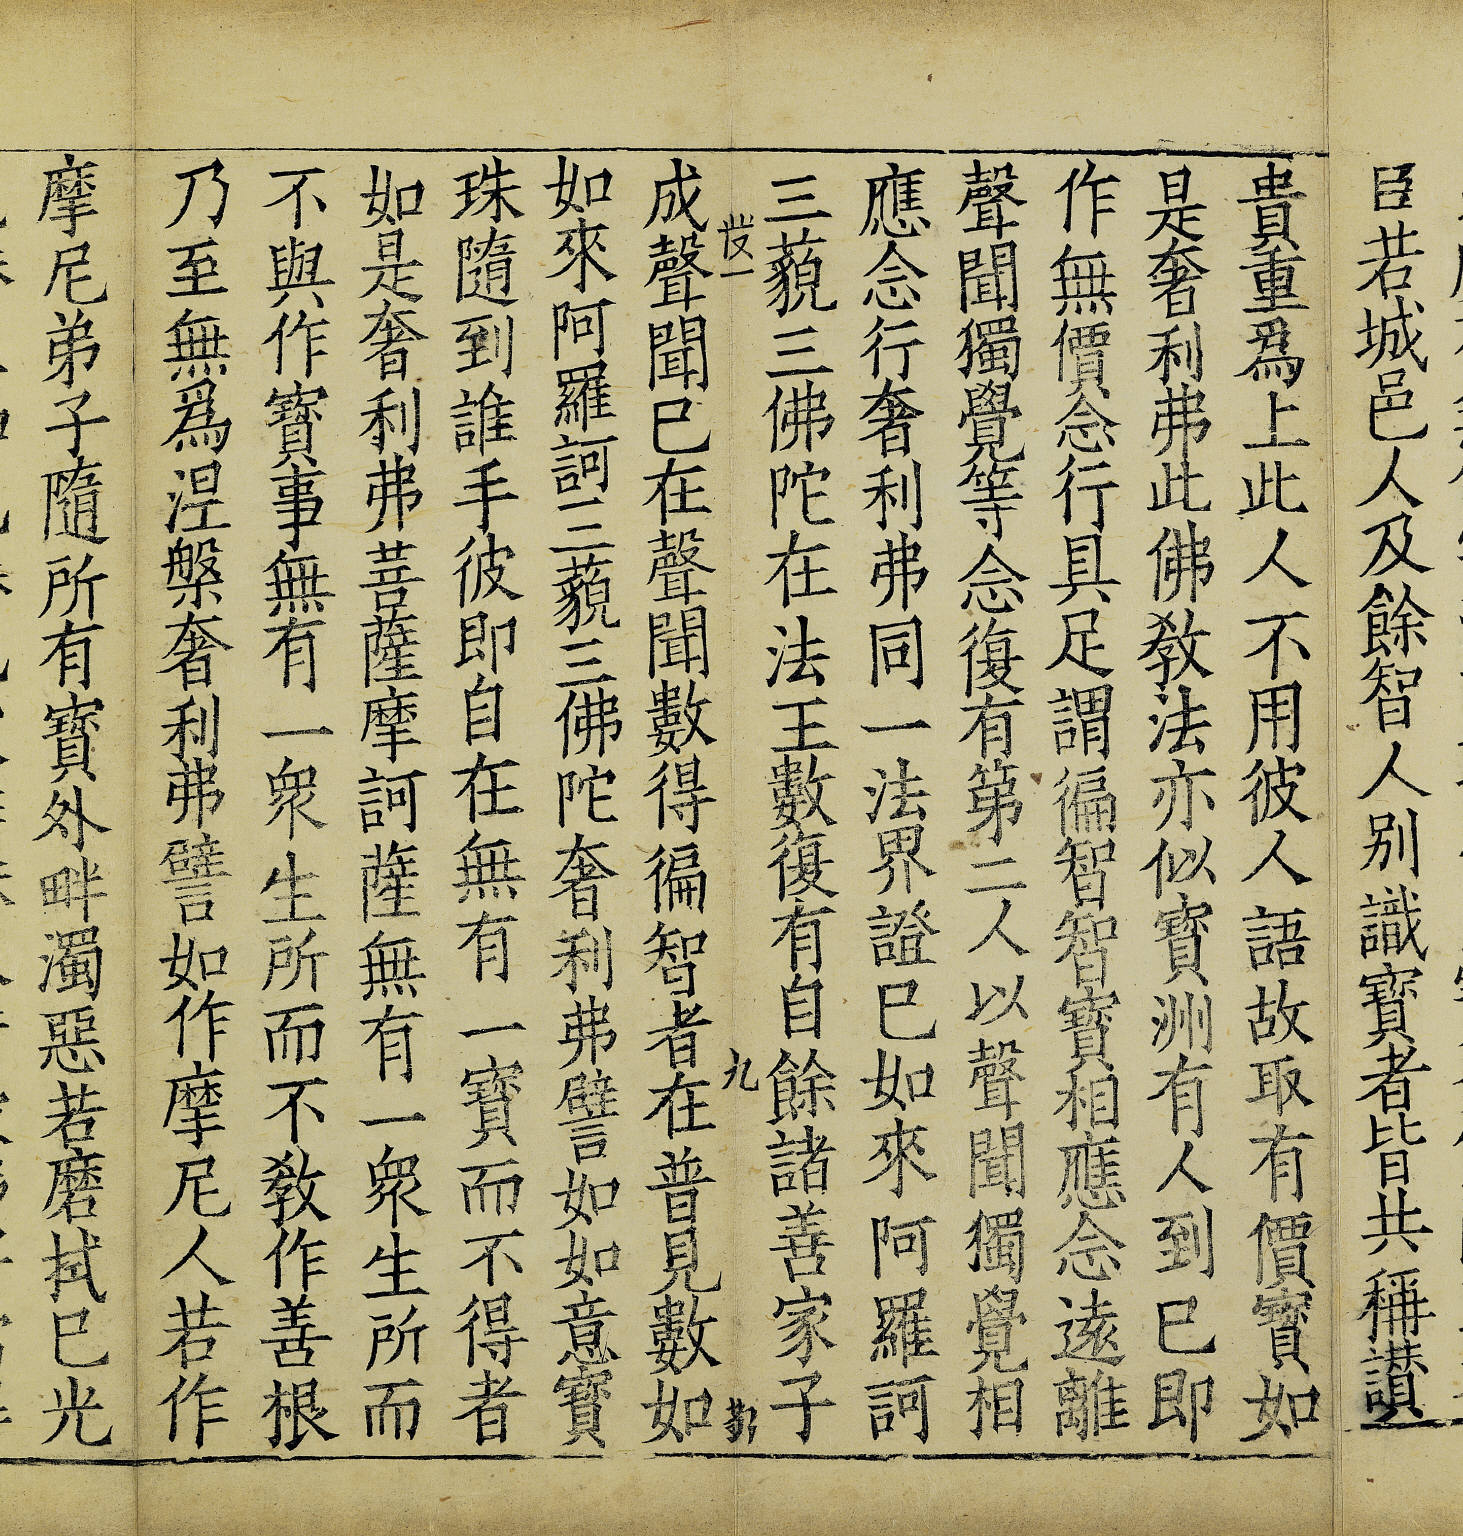 臣若城邑人及餘智人別識寶者皆共稱讃
貴重爲上此人不用彼人語故取有價寶如
是奢利弗此佛教法亦似寶洲有人到已即
作無價念行具足謂徧智智寶相應念遠離
聲聞獨覺等念復有第二人以聲聞獨覺相
應念行奢利弗同一法界證已如來阿羅訶
三藐三佛陀在法王數復有自餘諸善家子
九
成聲聞已在聲聞數得徧智者在普見數如
如來阿羅訶三藐三佛陀奢利弗譬如如意寶
珠隨到誰手彼即自在無有一寶而不得者
如是奢利弗菩薩摩訶薩無有一衆生所而
不與作寶事無有一衆生所而不教作善根
乃至無爲涅槃奢利弗譬如作摩尼人若作
摩尼弟子隨所有寶外畔濁惡若磨拭已光